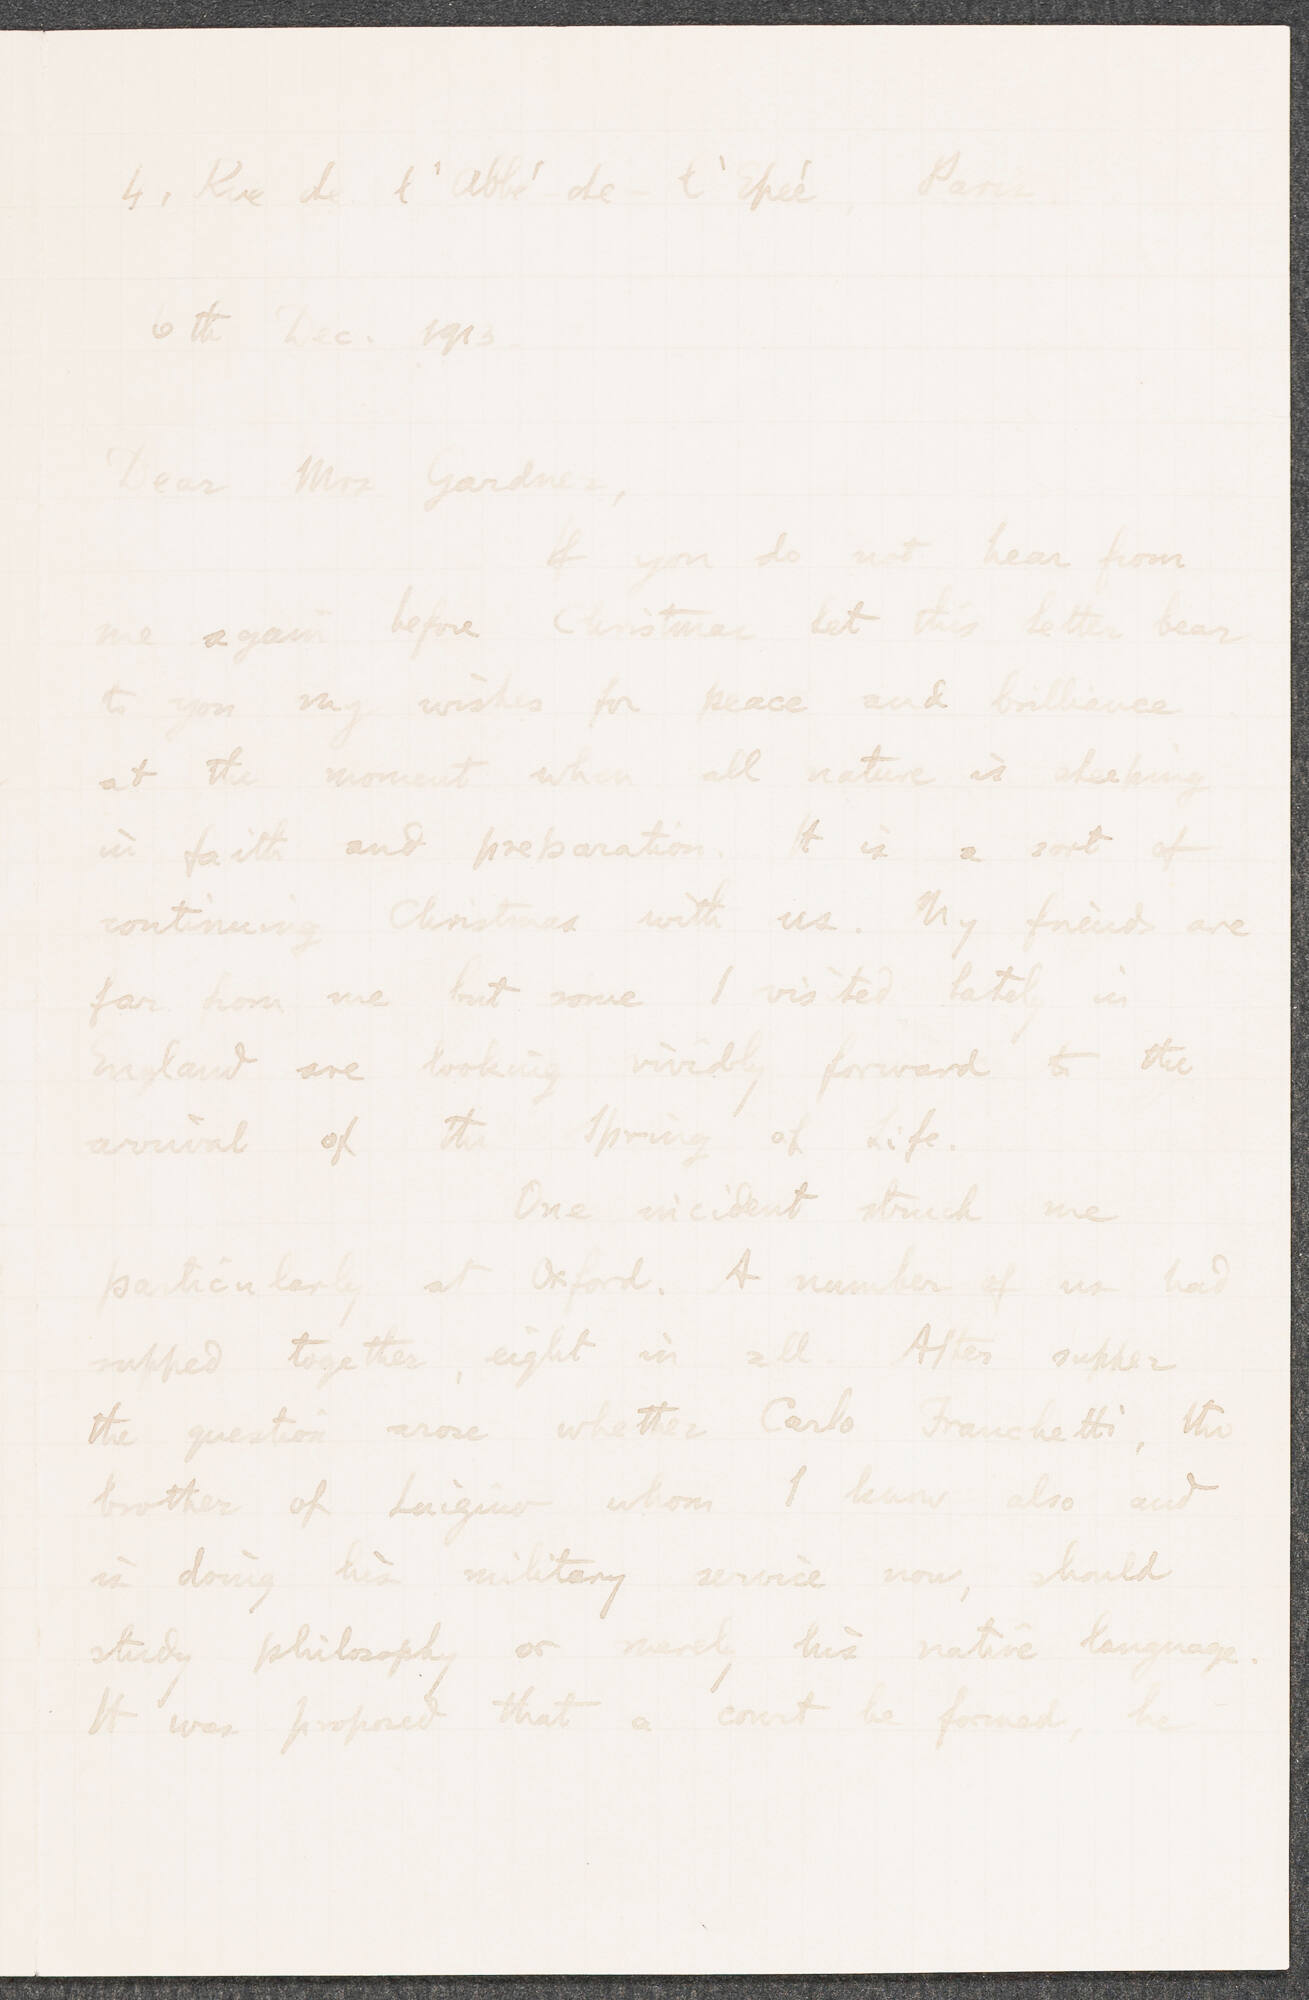 4, Rue de l'Abbé-de-l'Epée, Paris.
6th Dec. 1913.
Dear Mrs Gardner,
If you do not hear from
me again before Christmas let this letter bear
to you my wishes for peace and brilliance
at the moment when all nature is sleeping
in faith and preparation. It is a sort of
continuing Christmas with us. My friends are
far from me but some I visited lately in
England are looking vividly forward to the
arrival of the Spring of Life.
One incident struck me
particularly at Oxford. A number of us had
supped together, eight in all. After supper
the question arose whether Carlo Franchetti, the
brother of Luigino whom I know also and
is doing his military service now, should
study philosophy or merely his native language.
It was proposed that a court be formed, he